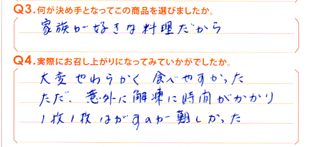 Q3.何が決め手となってこの商品を選びましたか。
家族が好きな料理だから
Q4.実際にお召し上がりになってみていかがでしたか。
大変やわらかく食べやすかった
ただ、意外に解凍に時間がかかり
1枚1枚はがすのが難しかった